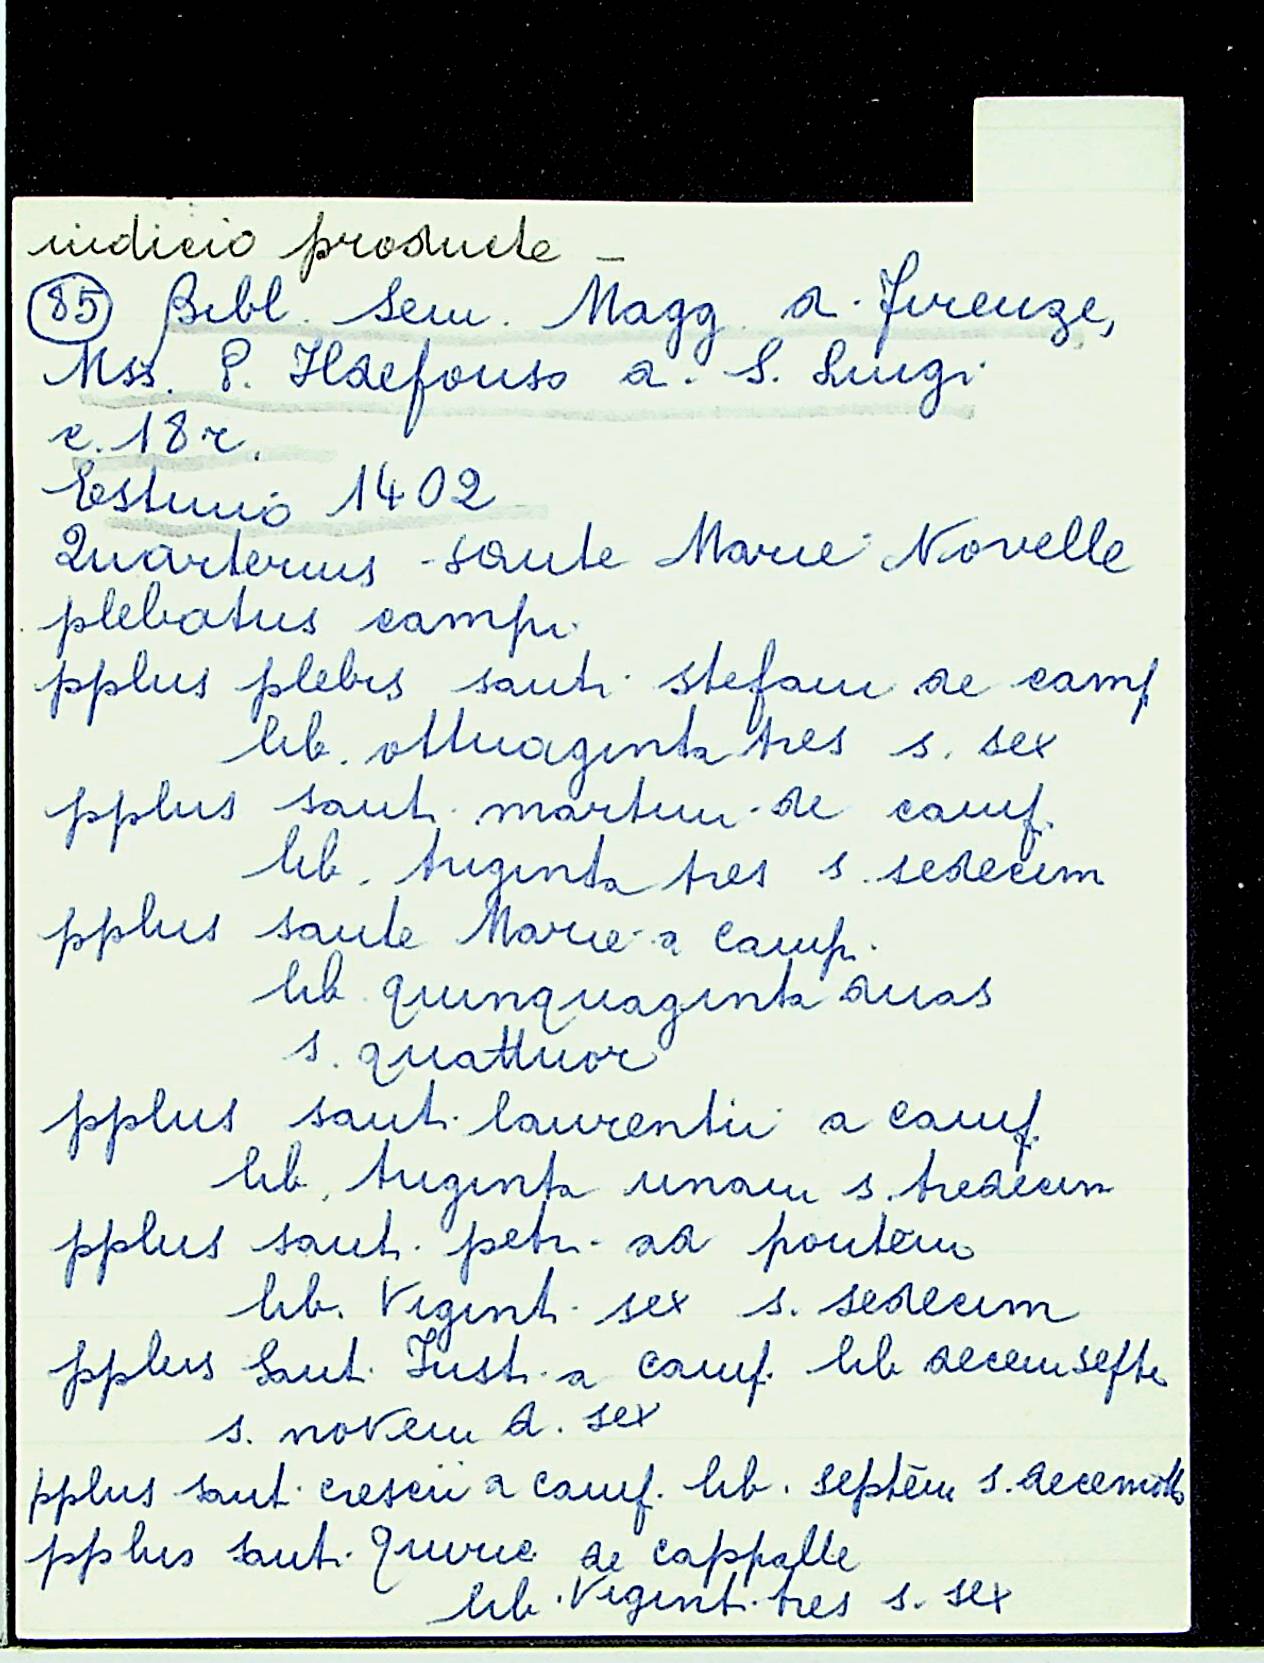 iudicio producte -
(85) Bibl. Sem. Magg. d. Firenze,
Mss. P. Ildefonso d. S. Luigi
c. 18 r.
Estimo 1402
Quarterius sante Marie Novelle
plebatus campi
pplus plebis santi stefani de camp
lib. ottuaginta tres s. sex
pplus santi martini de camp.
lib. triginta tres s. sedecim
pplus sante Marie a camp.
lib. quinquaginta duas
s. quattuor
pplus santi laurentii a camp.
lib. triginta unam s. tredecim
pplus santi petri ad pontem
lib. Viginti sex s. sedecim
pplus Santi Justi a camp. lib decemsepte
s. novem d. sex
pplus santi crescii a camp. lib. septem s. decemotto
pplus santi Quirici de cappalle
lib. Viginti tres s. sex